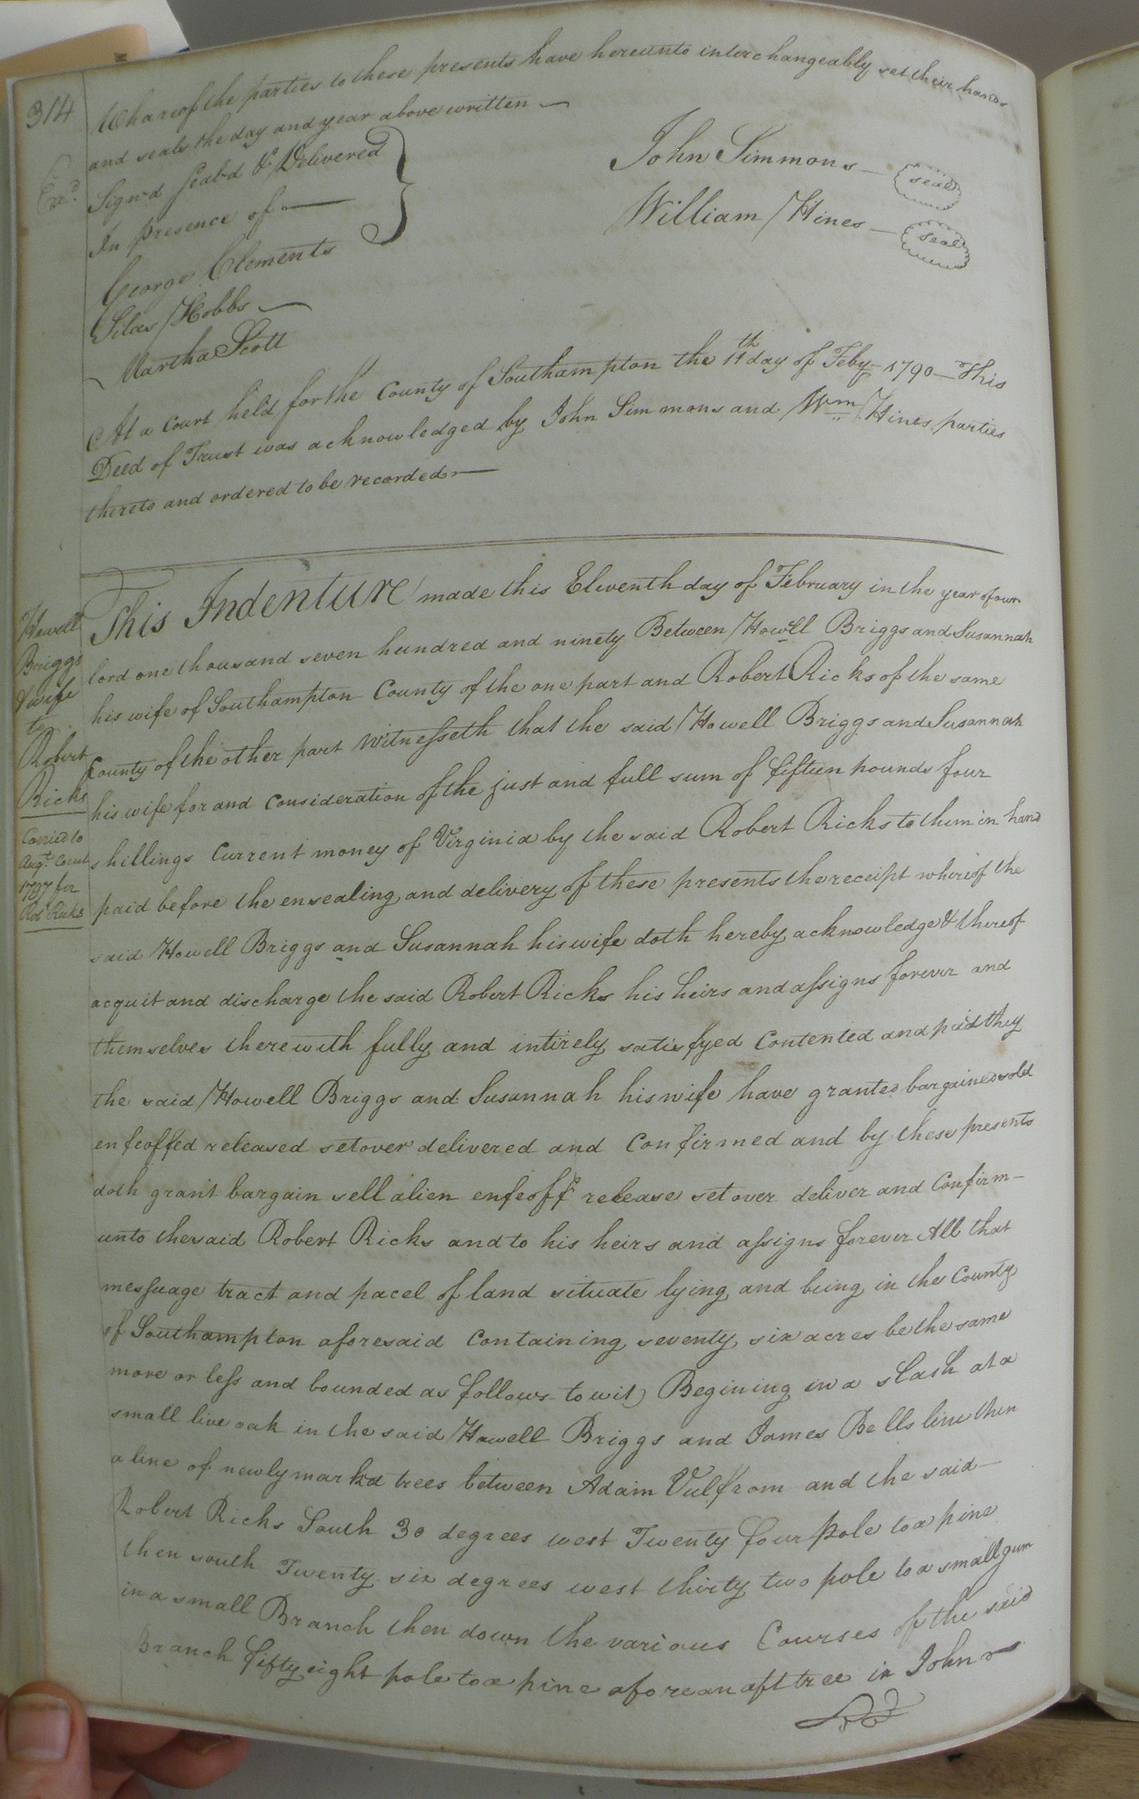 314
Whareof the parties to these presents have hereunto interchangeably set their hands
and seals the day and year above written
Exd.
Sign'd Seal'd & Delivered
In presence of
George Clements
Silas Hobbs
Martha Scott
John Simmons seal
William Hines seal
At a Court held for the County of Southampton the 11th day of Feby 1790 This
Deed of Trust was acknowledged by John Simmons and Wm Hines parties
thereto and ordered to be recorded
Howell
Briggs
& wife
to
Robert
Ricks
Carried to
Augt. Court
1797 for
Rob Ricks
This Indenture made this Eleventh day of February in the year of our
lord one thousand seven hundred and ninety Between Howell Briggs and Susannah
his wife of Southampton County of the one part and Robert Ricks of the same
County of the other part Witnesseth that the said Howell Briggs and Susannah
his wife for and Consideration of the just and full sum of fifteen pounds four
shillings Current money of Virginia by the said Robert Ricks to them in hand
paid before the ensealing and delivery of these presents the receipt whereof the
said Howell Briggs and Susannah his wife doth hereby acknowledge & thereof
acquit and discharge the said Robert Ricks his heirs and assigns forever and
themselves therewith fully and intirely satisfyed Contented and paid they
the said Howell Briggs and Susannah his wife have granted bargained sold
enfeoffed released setover delivered and Confirmed and by these presents
doth grant bargain sell alien enfeoff release set over deliver and Confirm
unto the said Robert Ricks and to his heirs and assigns forever All that
messuage tract and pacel of land situate lying and being in the County
of Southampton aforesaid Containing seventy six acres be the same
more or less and bounded as follows to wit) Begining in a slash at a
small live oak in the said Howell Briggs and James Bells line then
a line of newly markd trees between Adam Vulfrom and the said
Robert Ricks South 30 degrees west Twenty four pole to a pine
then south Twenty six degrees west thirty two pole to a small gum
in a small Branch then down the various Courses of the said
Branch fifty eight pole to a pine a fore an aft tree in John